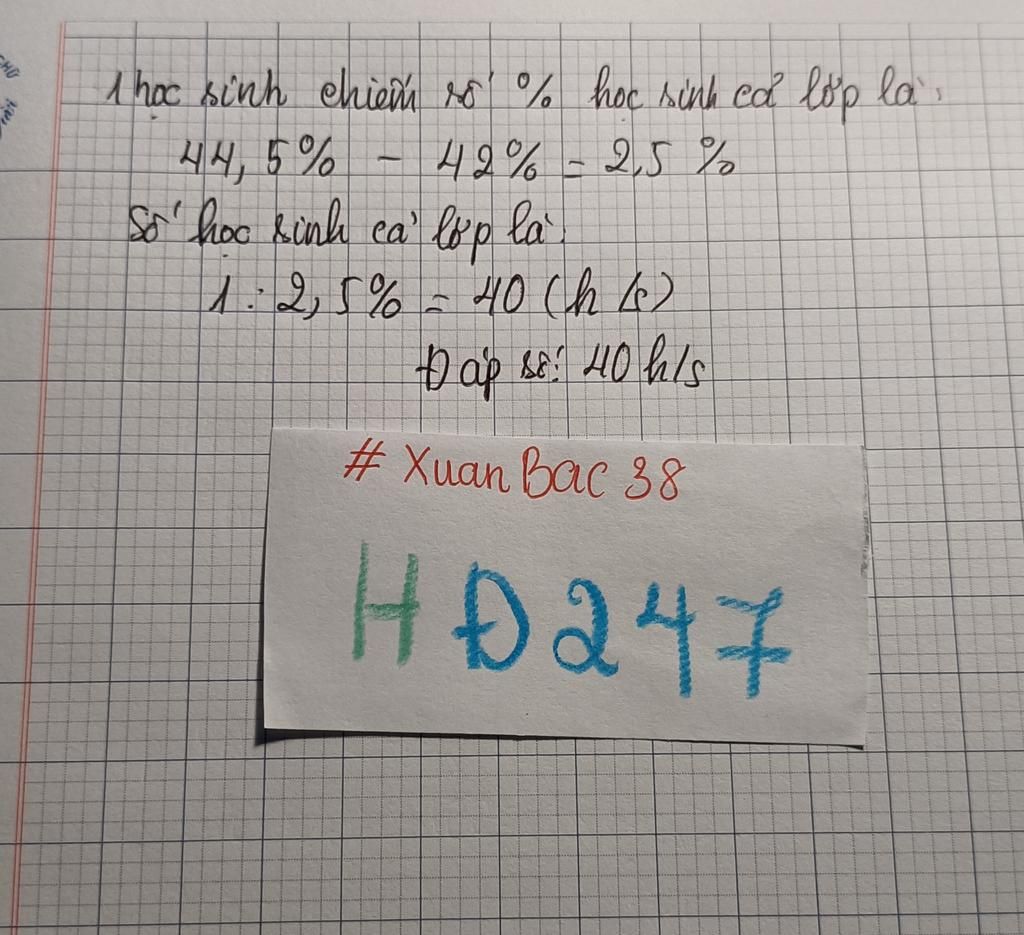 1 học sinh chiếm số % học sinh cả lớp là:
44,5% - 42% = 2,5%
Số học sinh cả lớp là:
1 : 2,5% = 40 (h/s)
Đáp số: 40 h/s
# XuanBac 38
HĐ247